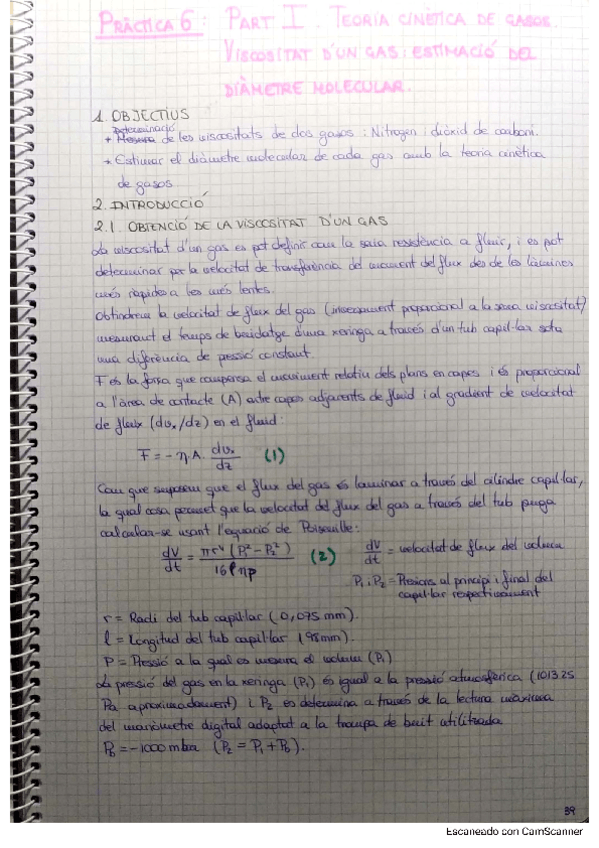 PRÀCTICA 6: PART I. TEORIA CINÈTICA DE GASOS.
VISCOSITAT D'UN GAS: ESTIMACIÓ DEL
DIÀMETRE MOLECULAR.
1. OBJECTIUS
Determinació
+ Mesura de les viscositats de dos gasos: Nitrogen i diòxid de carboni.
+ Estimar el diàmetre molecular de cada gas amb la teoria cinètica
de gasos
2. INTRODUCCIÓ
2.1. OBTENCIÓ DE LA VISCOSITAT D'UN GAS
La viscositat d'un gas es pot definir com la seva resistència a fluir, i es pot
determinar per la velocitat de transferència del moment del flux des de les làmines
més ràpides a les més lentes.
Obtindrem la velocitat de flux del gas (inversament proporcional a la seva viscositat)
mesurant el temps de buidatge d'una xeringa a través d'un tub capil·lar sota
una diferència de pressió constant.
F és la força que compensa el moviment relatiu dels plans en capes i és proporcional
a l'àrea de contacte (A) entre capes adjacents de fluid i al gradient de velocitat
de flux (dvx/dz) en el fluid:
F = - η·A· dvx/dz (1)
Com que suposem que el flux del gas és laminar a través del cilindre capil·lar,
la qual cosa permet que la velocitat del flux del gas a través del tub pugui
calcular-se usant l'equació de Poiseuille:
dV/dt = πr⁴(P₁²-P₂²)/16ℓηp (2) dV/dt = velocitat de flux del volum
P₁ i P₂ = Pressions al principi i final del
capil·lar respectivament
r = Radi del tub capil·lar (0,075 mm).
l = Longitud del tub capil·lar (98mm).
P = Pressió a la qual es mesura el volum (P₁)
La pressió del gas en la xeringa (P₁) és igual a la pressió atmosfèrica (101325
Pa aproximadament) i P₂ es determina a través de la lectura màxima
del manòmetre digital adaptat a la trompa de buit utilitzada
P₀ = -1000 mba (P₂ = P₁ + P₀).
39
Escaneado con CamScanner